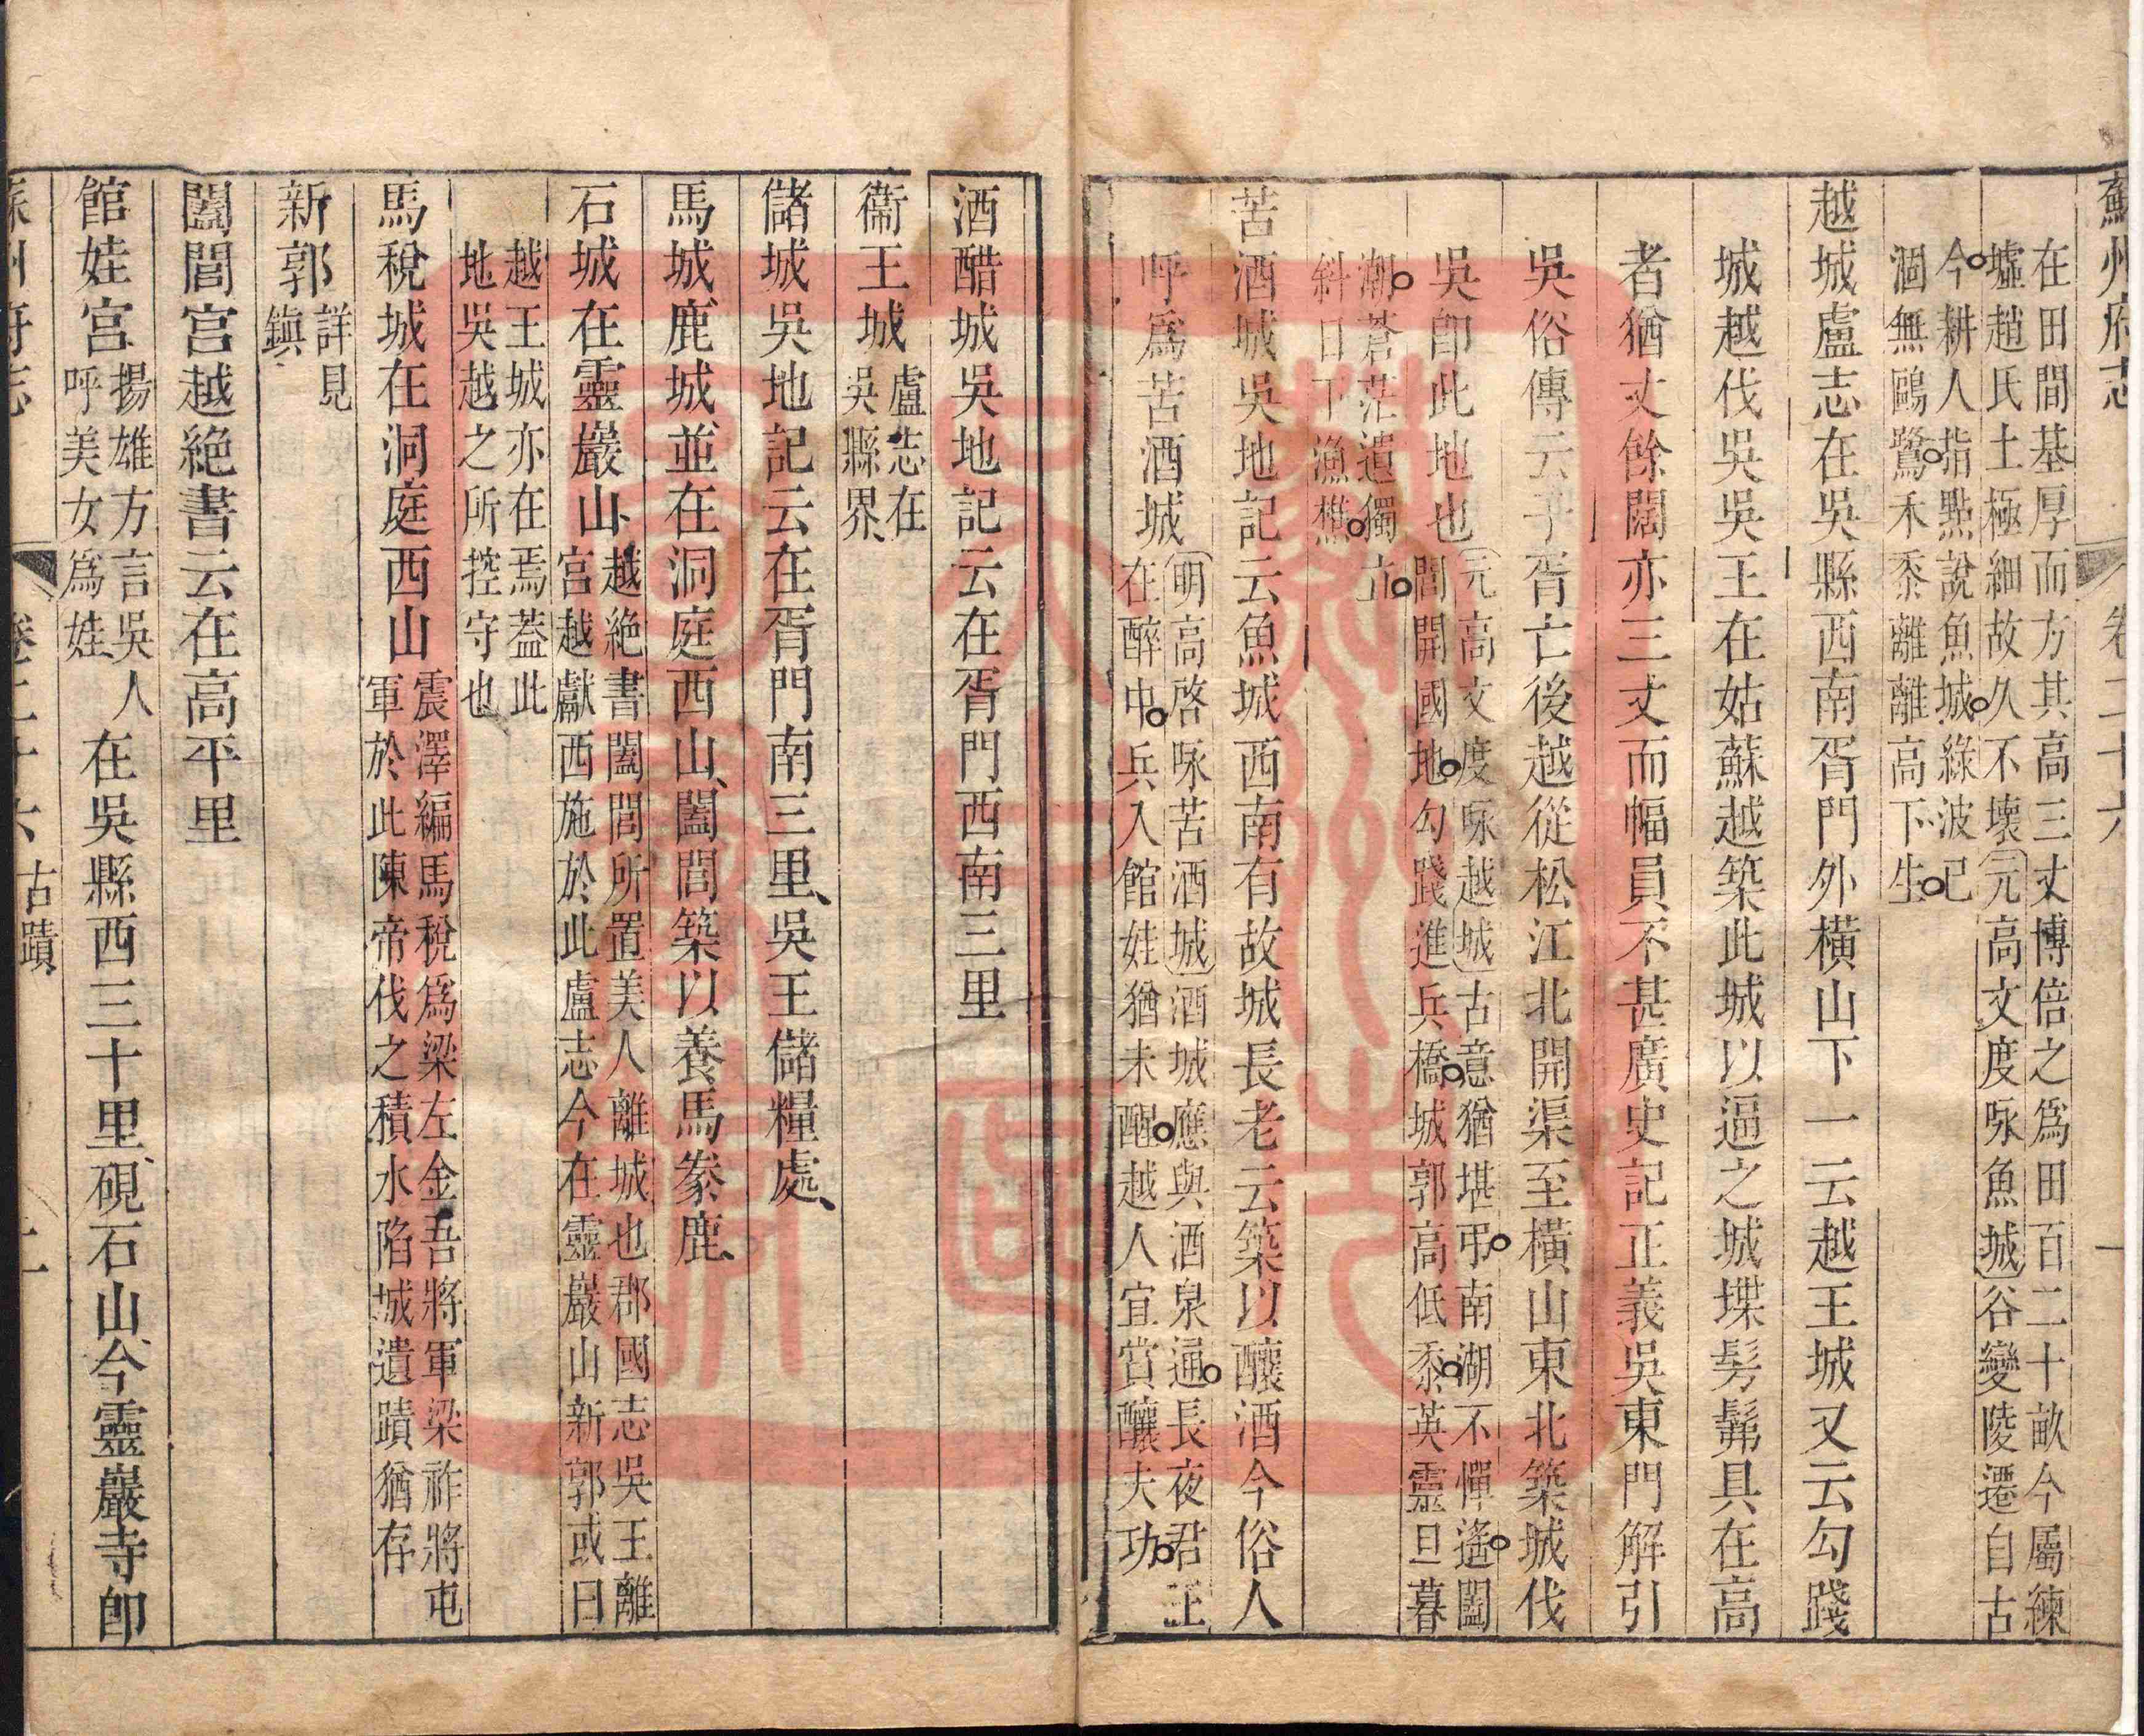 蘇州府志 卷二十六
在田間基厚而方其高三丈博倍之為田百二十畝今屬練
墟趙氏土極細故久不壞元高文度咏魚城谷變陵遷自古
今耕人指點說魚城綠波已
涸無鷗鷺禾黍離離高下生
越城盧志在吳縣西南胥門外橫山下一云越王城又云勾踐
城越伐吳吳王在姑蘇越築此城以逼之城堞髣髴具在高
者猶丈餘闊亦三丈而幅員不甚廣史記正義吳東門解引
吳俗傳云子胥亡後越從松江北開渠至橫山東北築城伐
吳卽此地也
元高文度咏越城古意猶堪弔南湖不憚遙闔
閭開國地勾踐進兵橋城郭高低黍英靈旦暮
潮蒼茫遺獨立
斜日下漁樵
苦酒城吳地記云魚城西南有故城長老云築以釀酒今俗人
呼爲苦酒城
明高啓咏苦酒城酒城應與酒泉通長夜君王
在醉中兵入館娃猶未醒越人宜賞釀夫功
酒醋城吳地記云在胥門西南三里
衞王城
盧志在
吳縣界
儲城吳地記云在胥門南三里吳王儲糧處
馬城鹿城並在洞庭西山闔閭築以養馬豢鹿
石城在靈巖山
越絕書闔閭所置美人離城也郡國志吳王離
宮越獻西施於此盧志今在靈巖山新郭或曰
越王城亦在焉葢此
地吳越之所控守也
馬稅城在洞庭西山
震澤編馬稅爲梁左金吾將軍梁祚將屯
軍於此陳帝伐之積水陷城遺蹟猶存
新郭
詳見
鎮
闔閭宮越絕書云在高平里
館娃宮
揚雄方言吳人
呼美女爲娃
在吳縣西三十里硯石山今靈巖寺卽
蘇州府志 卷二十六 古蹟 二